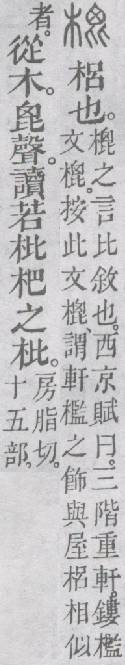 㮰 梠也。
㮰之言比敘也。西京賦曰。三階重軒。鏤檻
文㮰。按此文㮰、謂軒檻之飾與屋梠相似
者。
從木。𣬉聲。讀若枇杷之枇。
房脂切。
十五部。